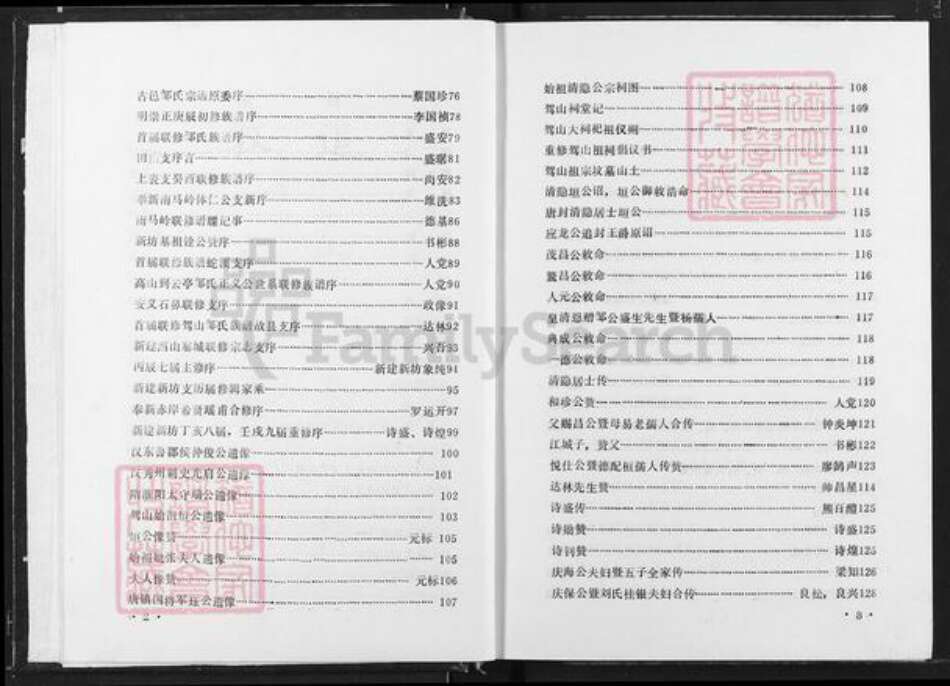 古邑邹氏宗谱原委序 蔡国珍76
明崇正庚辰初修族谱序 李国桢78
首届联修邹氏族谱序 盛安79
支序言 盛琚81
上袁支癸酉联修族谱序 尚安82
奉新南马岭体仁公支新序 维洗83
南马岭联修谱牒记事 德基86
新坊基祖诠公赞序 书彬88
首届联修族谱蛇溪支序 人党89
高山到云亭邹氏正义公世系联修族谱序 人党90
安义石鼻联修支序 政像91
首届联修驾山邹氏族谱故县支序 达林92
新建西山寨城联修宗志支序 兴吾93
丙辰七届主修序 新建新坊象纯94
新建新坊支历届修辑家乘 95
奉新赤岸甫合修序 罗运开97
新建新坊丁亥八届，壬戌九届重修序 诗盛、诗煌99
汉东鲁郡侯仲俊公遗像 100
汉秀州刺史光启公遗像 101
隋淮阳太守瑞公遗像 102
驾山始祖垣公遗像 103
垣公像赞 元标 105
始祖妣张夫人遗像 105
夫人像赞 元标106
唐镇国将军珏公遗像 107
· 2 ·
始祖清隐公宗祠图 108
驾山祠堂记 109
驾山大祠祀祖仪阙 110
重修驾山祖祠倡议书 111
驾山祖宗坟墓山土 112
清隐垣公诏，垣公御敕浩命 114
唐封清隐居士垣公 115
应龙公追封王爵原诏 115
茂昌公敕命 116
鳌昌公敕命 116
人元公敕命 117
皇清恩赠邹公盛生先生暨杨孺人 117
典成公敕命 118
一德公敕命 118
清隐居士传 119
和珍公赞 人党120
父赐昌公暨母易老孺人合传 钟炎坤121
江城子，赞父 书彬122
悦仕公暨德配桓孺人传赞 廖鹄声123
达林先生赞 帅昌星114
诗盛传 熊百醴125
诗勋赞 诗盛125
诗钊赞 诗煌125
庆海公夫妇暨五子全家传 梁知126
庆保公暨刘氏桂银夫妇合传 良松，良兴128
· 3 ·
FamilySearch